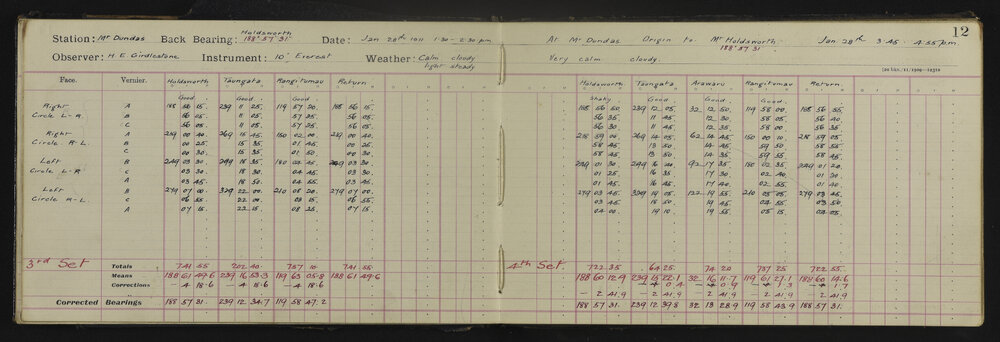 12
Holdsworth
Station: Mt Dundas Back Bearing: 188° 57' 31" Date: Jan 28th 1911 1·30 - 2·30 p.m.
Observer: H. E. Girdlestone Instrument: 10" Everest Weather: Calm cloudy
light steady
Face. Vernier. Holdsworth Taungata Rangitumau Return
Good Good
Right A 188 56 15 239 11 25 119 57 20 188 56 15
Circle L-R B 56 05 11 05 57 25 56 05
C 56 05 11 05 57 25 56 05
Right A 219 00 40 269 15 45 150 02 00 219 00 40
Circle R-L B 00 25 15 35 01 45 00 25
C 00 30 15 35 01 50 00 30
Left B 249 03 30 299 18 35 180 04 45 249 03 30
Circle L-R C 03 30 18 30 04 45 03 30
A 03 45 18 50 04 55 03 45
Left B 279 07 00 329 22 00 210 08 20 279 07 00
Circle R-L C 06 55 22 00 08 15 06 55
A 07 15 22 15 08 25 07 15
3rd Set Totals 741 55 202 40 757 10 741 55
Means 188 61 49·6 239 16 53·3 119 63 05·8 188 61 49·6
Corrections - 4 18·6 - 4 18·6 - 4 18·6
Corrected Bearings 188 57 31 239 12 34·7 119 58 47·2
At Mt Dundas Origin to Mt Holdsworth Jan 28th 3·45 - 4·35 p.m.
188° 57' 31"
Very calm cloudy
Holdsworth Taungata Arawaru Rangitumau Return
Shaky Good Good Good
188 56 50 239 12 05 32 12 50 119 58 00 188 56 55
56 35 11 45 12 30 58 05 56 40
56 30 11 45 12 35 58 00 56 35
218 59 00 269 14 05 62 14 45 150 00 10 218 59 05
58 45 13 50 14 45 59 50 58 55
58 45 13 50 14 35 59 55 58 45
249 01 30 299 16 40 92 17 35 180 02 35 249 01 20
01 25 16 35 17 30 02 40 01 20
01 45 16 45 17 40 02 55 01 40
279 03 45 329 19 05 122 19 55 210 05 05 279 03 45
03 45 18 50 19 45 04 55 03 50
04 00 19 10 19 55 05 15 04 05
4th Set. 722 35 64 25 74 20 757 25 722 55
188 60 12·9 239 15 22·1 32 16 11·7 119 61 27·1 188 60 14·6
- 0·4 - 0·9 - 1·3 - 1·7
- 2 41·9 - 2 41·9 - 2 41·9 - 2 41·9 - 2 41·9
188 57 31 239 12 39·8 32 13 28·9 119 58 43·9 188 57 31